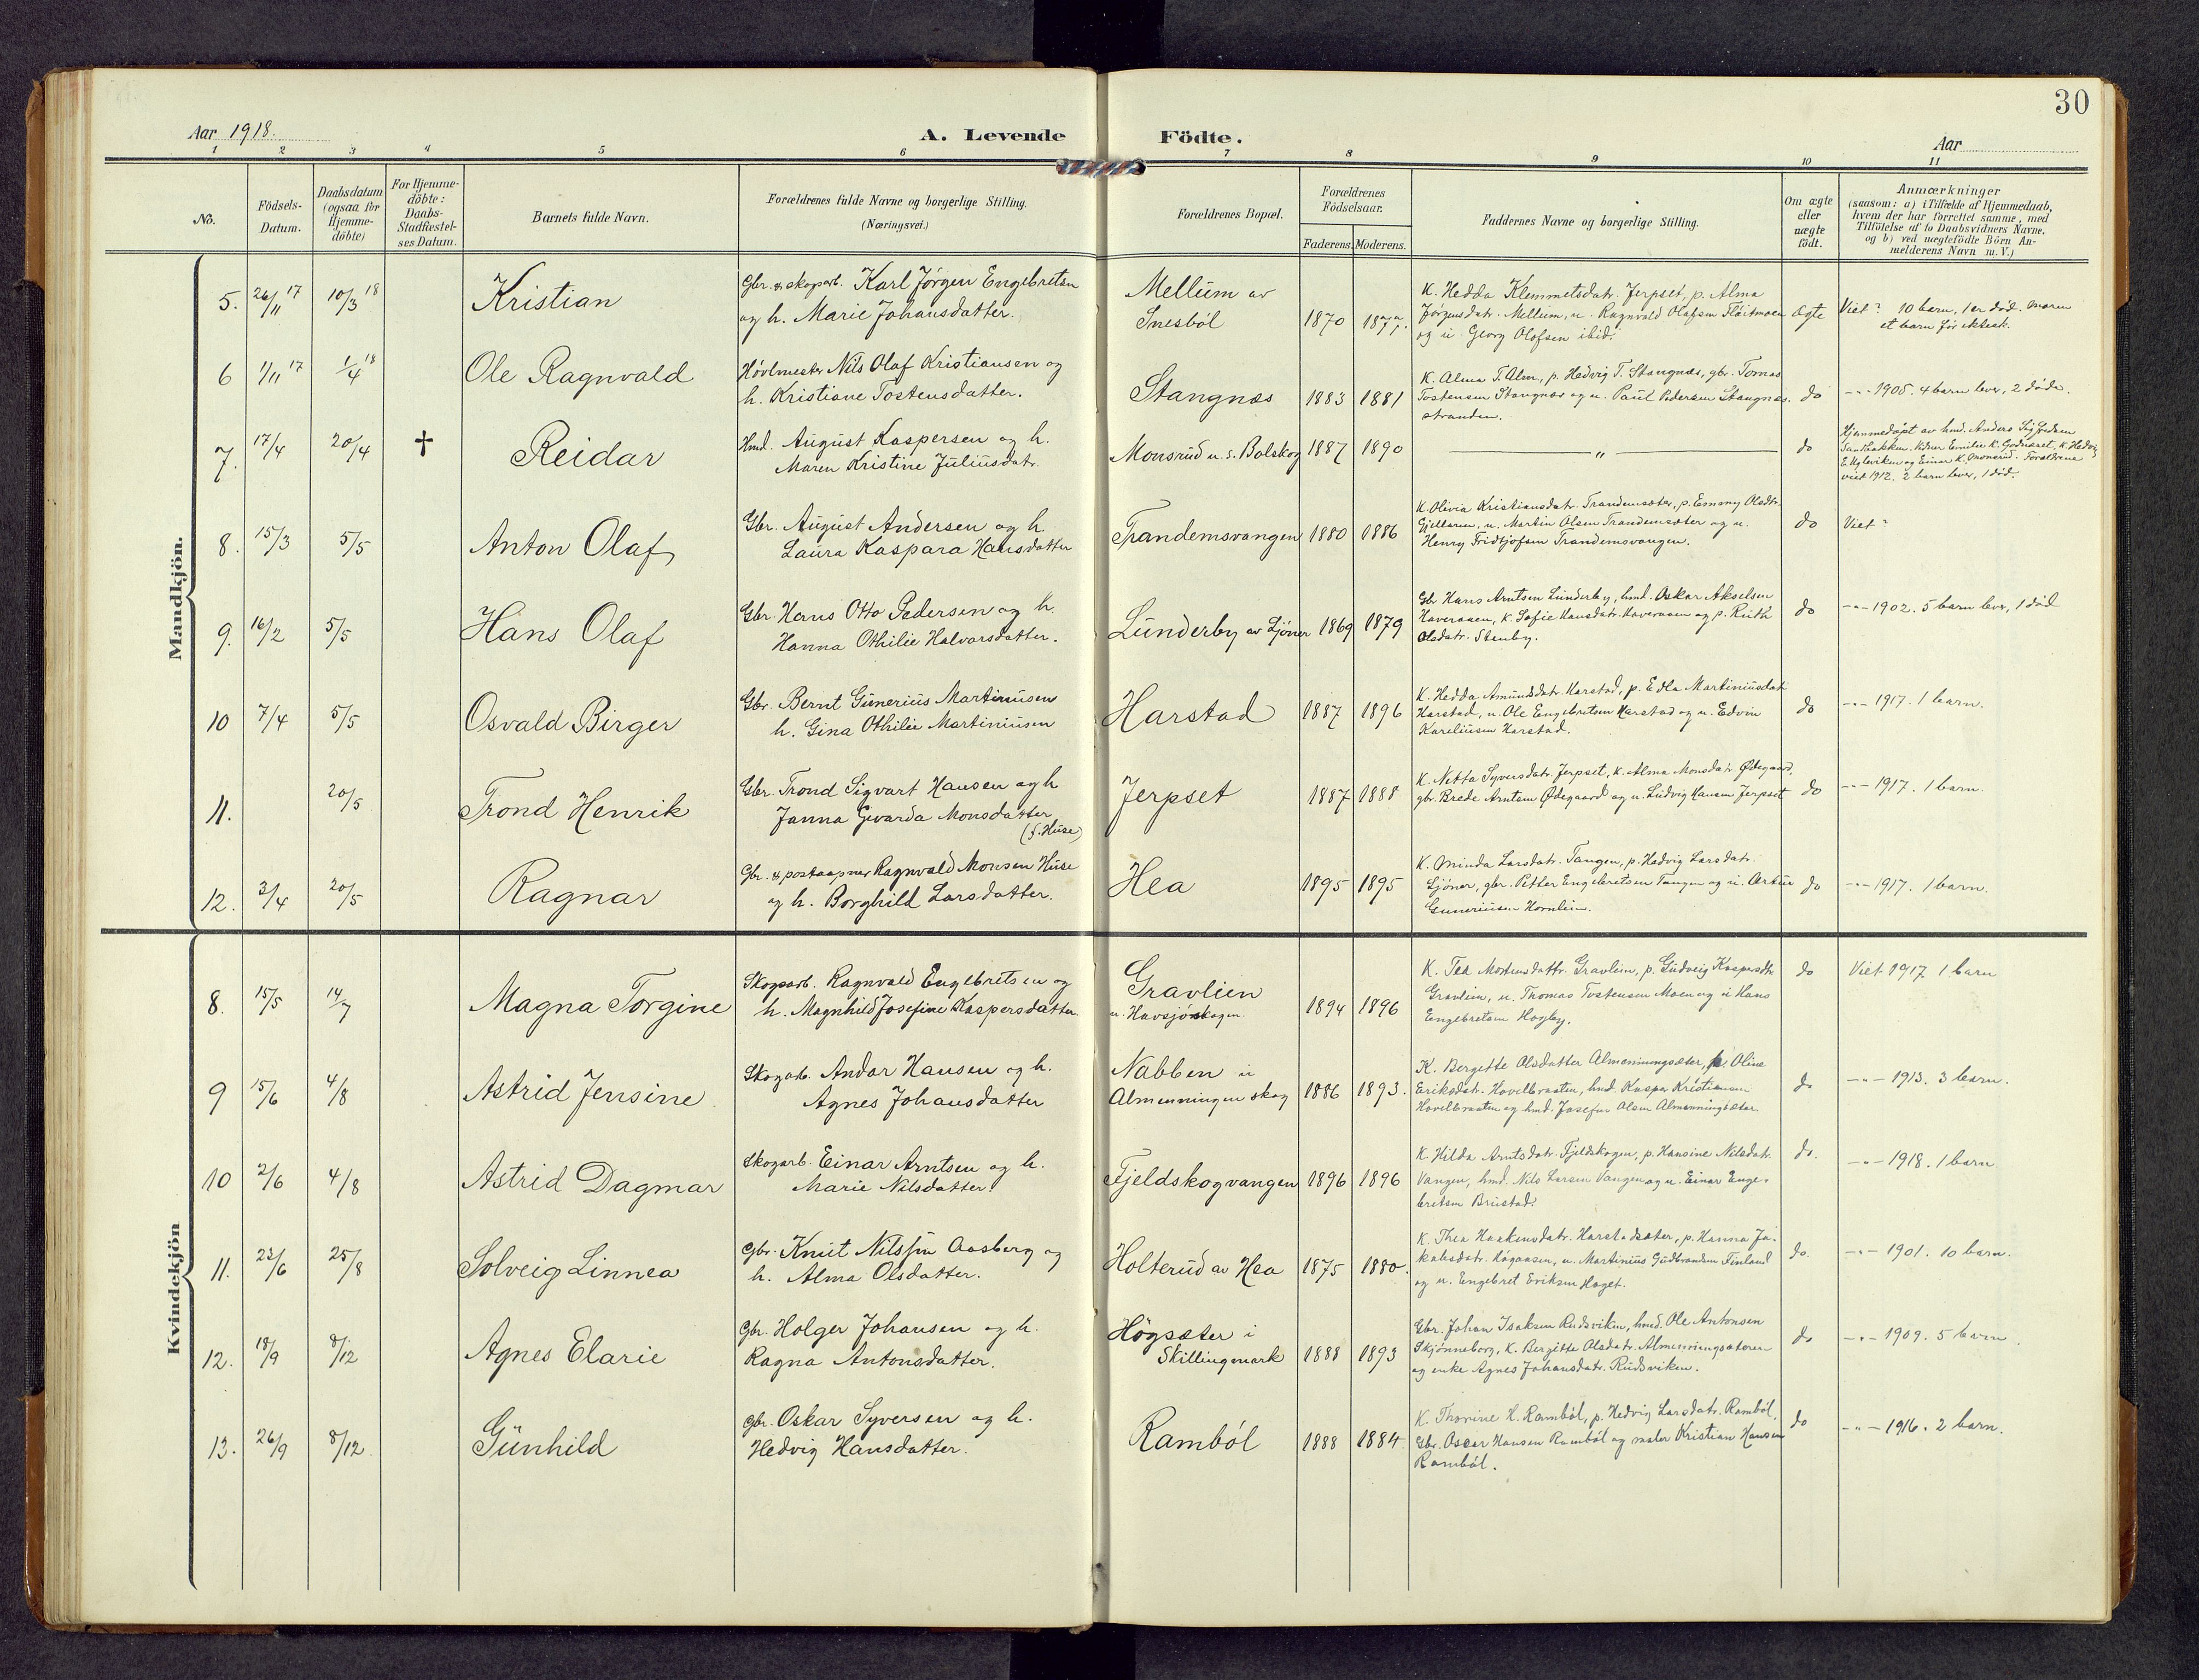 30
Aar 1918.
A. Levende Födte.
Aar
1 2 3 4 5 6 7 8 9 10 11
No.
Födsels-
Datum.
Daabsdatum
(ogsaa for
Hjemme-
döbte)
For Hjemme-
döbte:
Daabs-
Stadfæstel-
ses Datum.
Barnets fulde Navn.
Forældrenes fulde Navne og borgerlige Stilling.
(Næringsvei.)
Forældrenes Bopæl.
Forældrenes
Födselsaar.
Faderens. Moderens.
Faddernes Navne og borgerlige Stilling.
Om ægte
eller
uægte
födt.
Anmærkninger
(saasom: a) i Tilfælde af Hjemmedaab,
hvem der har forrettet samme, med
Tilföielse af to Daabsvidners Navne,
og b) ved uægtefödte Börn An-
melderens Navn m. V.)
Mandkjön.
5. 26/11 17 10/3 18
Kristian
Gbr. & skogarb. Karl Jørgen Engebretsen
og h. Marie Johansdatter.
Mellum av
Snesböl
1870
K. Hedda Klemmetsdatr. Jerpset, p. Alma
Jørgensdatr. Mellum, u. Ragnvald Olafsen Flöitmoen
og u Georg Olofsen ibid.
Ægte
Viet? 10 barn, 1 er död. Maren
et barn för ektesk.
6 1/11 17 1/4 18
Ole Ragnvald
Hövlmester Nils Olaf Kristiansen og
h. Kristiane Tostensdatter.
Stangnæs
1883 1881
K. Alma T. Alm, p. Hedvig T. Stangnæs, gbr. Tomas
Tostensen Stangnæs og u. Paul Pedersen Stangnæs-
stranden.
do
-"- 1905. 4 barn lever, 2 döde.
7. 17/4 20/4 †
Reidar
Hmd. August Kaspersen og h.
Maren Kristine Juliusdatr.
Monsrud u. s. Bolskog
1887 1890
"
do
Hjemmedöpt av hmd. Anders Sigfredsen
K. Hedvig
E. Ugleviken og Einar K. Monsrud. Forældrene
viet 1912. 2 barn lever, 1 död.
8. 15/3 5/5
Anton Olaf
Gbr. August Andersen og h.
Laura Kaspara Hansdatter
Trandemsvangen
1880 1886
K. Olivia Kristiansdatr. Trandemsæter, p. Emmy Olsdtr.
Gjellaren, u. Martin Olsen Trandemsæter og u.
Henry Fridtjofsen Trandemsvangen.
do
Viet?
9. 16/2 5/5
Hans Olaf
Gbr. Hans Otto Pedersen og h.
Hanna Othilie Halvorsdatter.
Lunderby av Ljöner
1869 1879
Gbr Hans Arntsen Lunderby, hmd. Oskar Akselsen
Haveraaen, K. Sofie Hansdatr. Haveraaen og p. Ruth
Olsdatr. Stenby.
do
-"- 1902. 5 barn lever, 1 död
10 7/4 5/5
Osvald Birger
Gbr. Bernt Gunerius Martiniusen
h. Gina Othilie Martiniusen
Harstad
1887 1896
K. Hedda Amundsdatr. Harstad, p. Edla Martiniusdatr
Harstad, u. Ole Engebretsen Harstad og u. Edvin
Kareliusen Harstad.
do
-"- 1917. 1 barn.
11. 20/5
Trond Henrik
Gbr. Trond Sigvart Hansen og h
Janna Gevarda Monsdatter
(f. Huse)
Jerpset
1887 1888
K. Netta Syversdatr. Jerpset, K. Alma Monsdatr. Ødegaard,
gbr. Brede Arntsen Ødegaard og u. Ludvig Hansen Jerpset
do
-"- 1917. 1 barn.
12. 3/4 20/5
Ragnar
Gbr. & postaapner Ragnvald Monsen Huse
og h. Borghild Larsdatter.
Hea
1895 1895
K. Minda Larsdatr. Tangen, p. Hedvig Larsdatr.
Ljöner, gbr. Petter Engebretsen Tangen og u. Artur
Guneriusen Hornlien.
do
-"- 1917. 1 barn.
Kvindekjön
8. 15/5 14/7
Magna Torgine
Skogsarb. Ragnvald Engebretsen og
h. Magnhild Josefine Kaspersdatter.
Gravlien
u. Havsjöskogen.
1894 1896
K. Tea Mortensdattr. Gravlien, p. Gudveig Kaspersdtr.
Gravlien, u. Thomas Tostensen Moen og u Hans
Engebretsen Hogby.
do
Viet 1917 1 barn
9 15/6 4/8
Astrid Jensine
Skogarb. Andor Hansen og h.
Agnes Johansdatter
Nabben u
Almenningen skog
1886 1893.
K. Bergitte Olsdatter Almenningsæter, p Oline
Eriksdatr. Hovelbraaten, hmd. Kasper Kristiansen
Hovelbraaten og hmd. Josefur Olsen Almenningsæter.
do
-"- 1913. 3 barn.
10 2/6 4/8
Astrid Dagmar
Skogarb. Einar Arntsen og h.
Marie Nilsdatter.
Fjeldskogvangen
1896 1896
K. Hilda Arntsdatr. Fjeldskogen, p. Hansine Nilsdatr.
Vangen, hmd. Nils Larsen Vangen og u. Einar Enge-
bretsen Brustad.
do.
-"- 1918. 1 barn
11. 23/6 25/8
Solveig Linnea
Gbr. Knut Nilssen Aasberg og
h. Alma Olsdatter.
Holterud av Hea
1875 1880.
K. Thea Haakensdatr. Harstadsæter, p. Hanna Ja-
kobsdatr. Högaasen, u. Martinius Gudbrandsen Finland
og u. Engebret Eriksen Haget.
do.
-"- 1901. 10 barn.
12. 18/9 8/12
Agnes Elarie
Gbr. Holger Johansen og h.
Ragna Antonsdatter.
Högsæter i
Skillingmark
1888 1893
Gbr. Johan Isaksen Rudsviken, hmd. Ole Antonsen
Skjönneborg, K. Bergitte Olsdatr. Almenningsæteren
og enke Agnes Johansdatr. Rudsviken.
do
-"- 1909. 5 barn.
13. 26/9 8/12
Gunhild
Gbr. Oskar Syversen og h.
Hedvig Hansdatter.
Ramböl
1888 1884
K. Thorine H. Ramböl, p. Hedvig Larsdatr. Ramböl,
Gbr. Oscar Hansen Ramböl og maler Kristian Hansen
Ramböl.
do
-"- 1916. 2 barn.